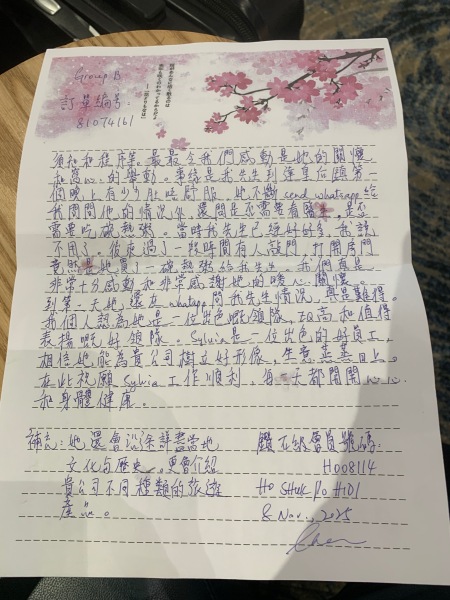 Group B
訂單編號:
81074161
須知和程序等。最最令我們感動是她的關懷
和窩心的舉動。事緣是我先生到達皇后鎮第一
個晚上有少少肚唔舒服,她不斷send whatsapp給
我問問他的情況外,還問是否需要看醫生,是否
需要吃碗熱粥。當時我先生已經好好多,我說
不用了。但來過了一段時間有人敲門,打開房門
竟然是她買了一碗熱粥給我先生。我們真是
非常十分感動和非常感謝她的暖心關懷。
到第一天她還在whatapp問我先生情況,真是難得。
我個人認為她是一位出色嘅領隊,EQ高和值得
表揚嘅好領隊。Sylvia是一位出色的好員工,
相信她能為貴公司樹立好形像,生意蒸蒸日上。
在此祝願Sylvia工作順利 每一天都開開心心
和身體健康。
補充:她還會沿途詳盡當地
文化與歷史。更會介紹
貴公司不同種類的旅遊
產品。
鑽石級會員號碼:
H008114
HO SHUK
8 Nov., 2025